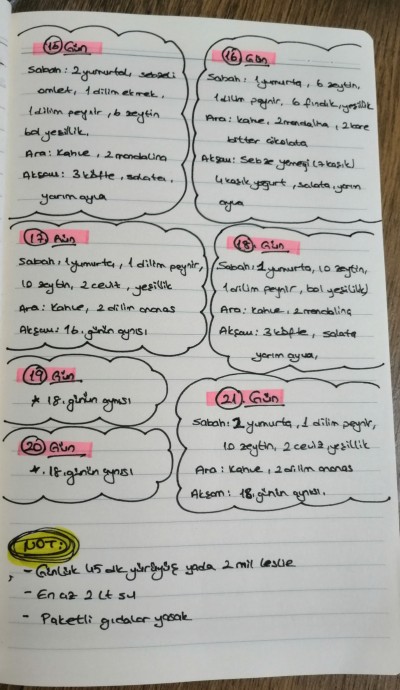 15 Gün
Sabah: 2 yumurtal, sebzeli
omlet, 1 dilim ekmek,
1 dilim peynir, 6 zeytin
bol yeşillik.
Ara: Kahve, 2 mandalina
Akşam: 3 köfte, salata,
yarım ayva
16 Gün
Sabah: 1 yumurta, 6 zeytin,
1 dilim peynir, 6 fındık, yeşillik
Ara: kahve, 2 mandalina, 2 kare
bitter çikolata
Akşam: Sebze yemeği (7 kaşık)
4 kaşık yoğurt, salata, yarım
ayva
17 Gün
Sabah: 1 yumurta, 1 dilim peynir,
10 zeytin, 2 ceviz, yeşillik
Ara: Kahve, 2 dilim ananas
Akşam: 16. günün aynısı
18. Gün
Sabah: 1 yumurta, 10 zeytin,
1 dilim peynir, bol yeşillik
Ara: Kahve, 2 mandalina
Akşam: 3 köfte, salata
yarım ayva,
19 Gün
* 18. günün aynısı
20 Gün
* 18. günün aynısı
21. Gün
Sabah: 1 yumurta, 1 dilim peynir,
10 zeytin, 2 ceviz yeşillik
Ara: Kahve, 2 dilim ananas
Akşam: 18. günün aynısı.
NOT:
- Günlük 45 dk yürüyüş yada 2 mil leslie
- En az 2 Lt su
- Paketli gıdalar yasak